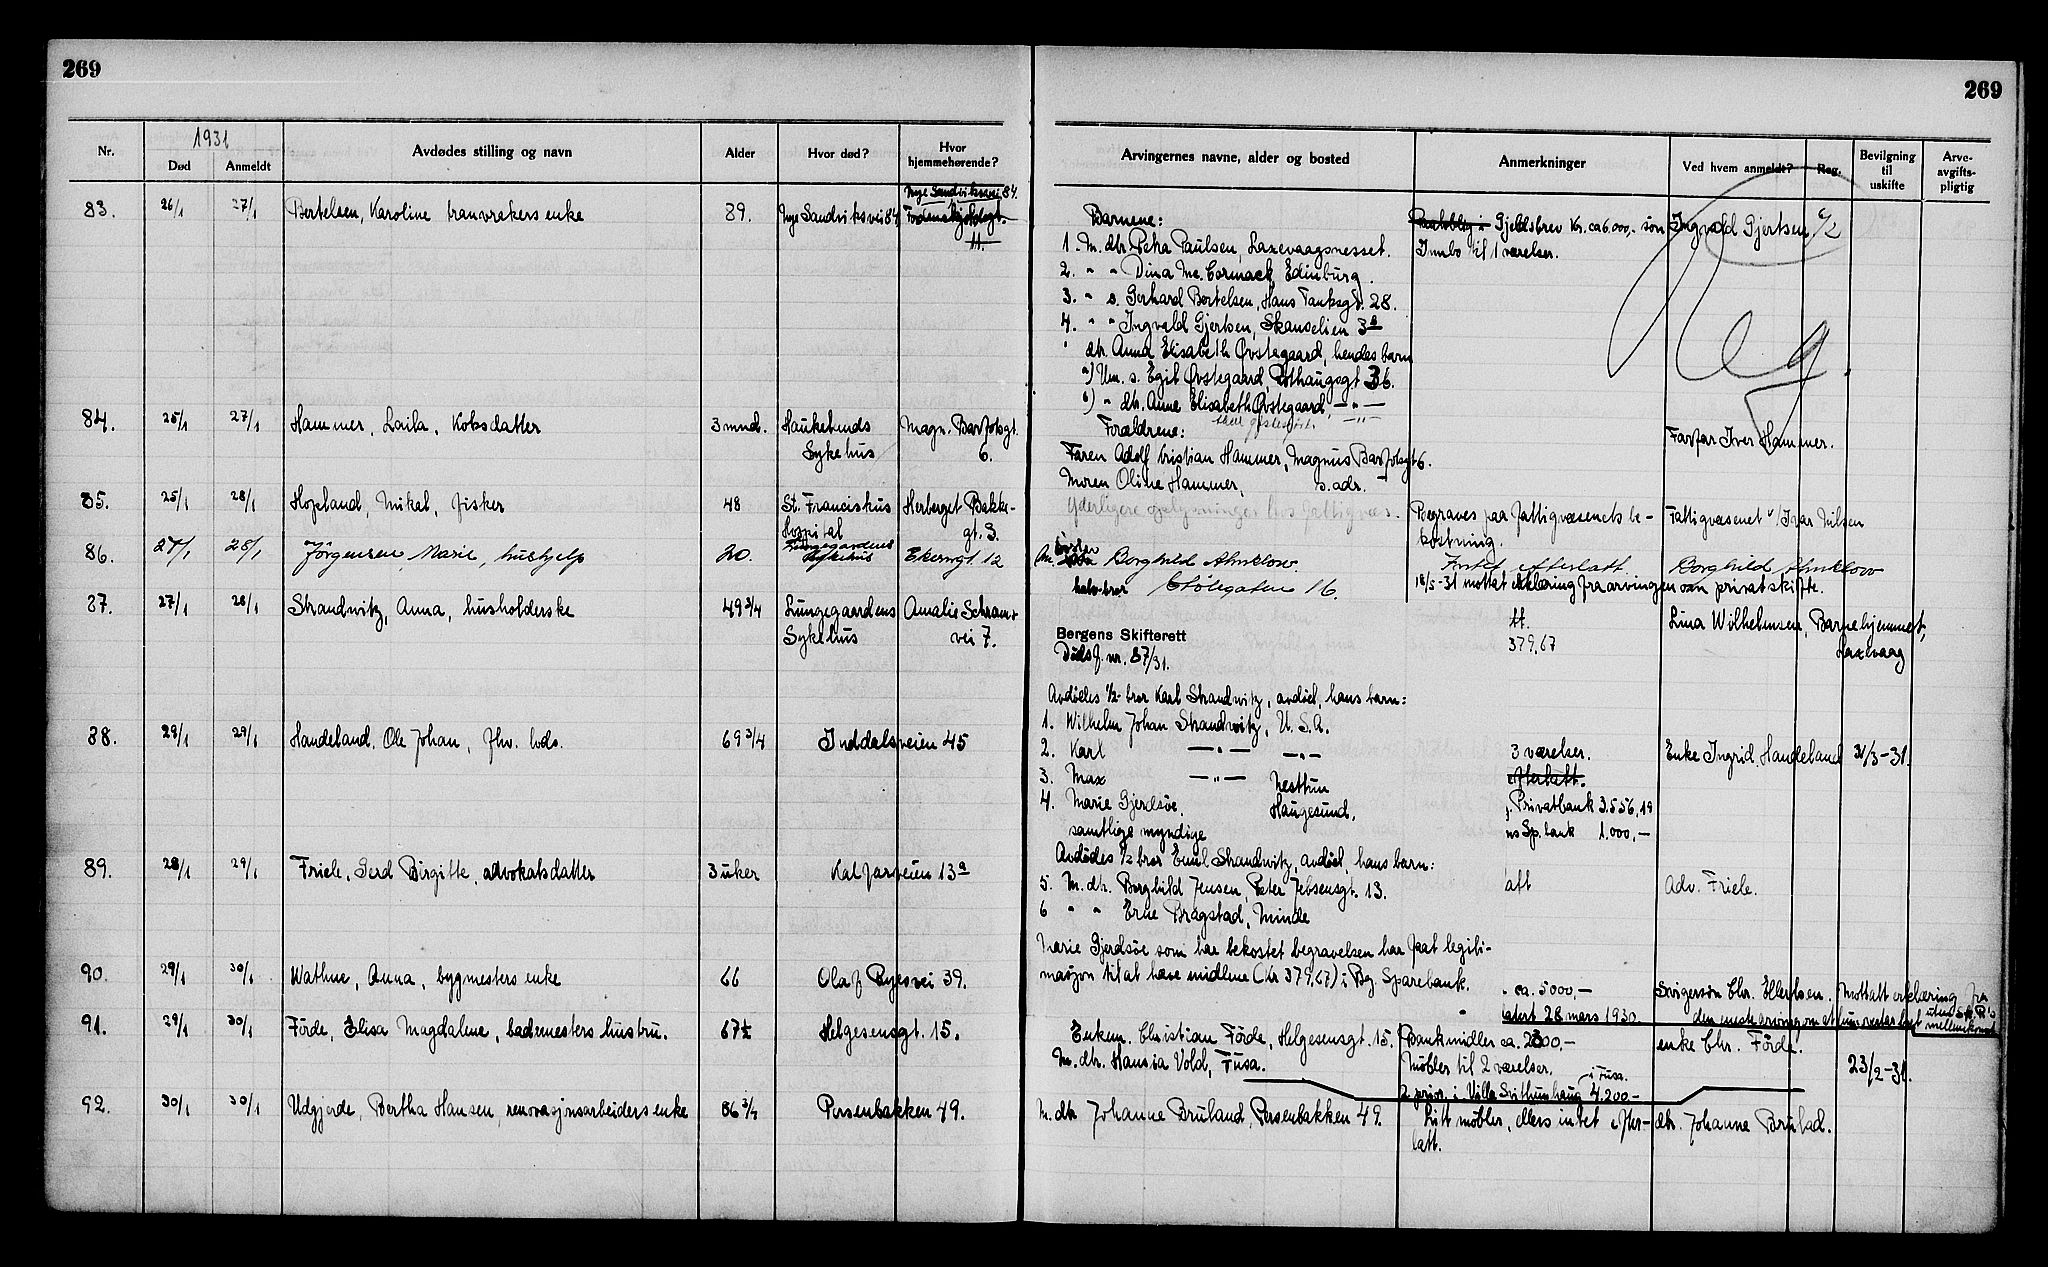 269
269
1931
Nr.
Død
Anmeldt
Avdødes stilling og navn
Alder
Hvor død?
Hvor hjemmehørende?
Arvingernes navne, alder og bosted
Anmerkninger
Ved hvem anmeldt?
Reg.
Bevilgning til uskifte
Arve-avgifts-pligtig
83. 26/1 27/1 Bertelsen, Karoline tranvrakers enke 89. Nye Sandviksvei 84,
Nye Sandviksvei 84.
Barnene:
1. M. dtr. Petra Paulsen, Laxevaagsnesset.
2. " " Dina Mc. Cormack, Edinburg.
3. " s. Gerhard Bertelsen, Hans Tanksgt. 28.
4. " " Ingvald Gjertsen, Skanselien 3a
dtr. Anna Elisabeth Øvstegaard, hendes barn
a) Um. s. Egil Øvstegaard, Rothaugsgt. 36.
b) " dtr. Anne Elisabeth Øvstegaard, — " —
Gjeldsbrev Kr. ca 6.000,- søn Ingvald Gjertsen 6/2
Innbo til 1 værelser.
Neg.
84. 25/1 27/1 Hammer, Laila, Koksdatter 3 mnd. Haukelands Magn. Barfotsgt.
Sykehus 6.
Forældrene:
Faren Adolf Kristian Hammer, Magnus Barfotsgt 6.
Moren Oline Hammer, s. adr.
Farfar Iver Hammer.
85. 25/1 28/1 Hopland, Mikal, fisker 48 St. Franciskus Herberget Bakke-
Hospital gt. 3.
Yderligere oplysninger hos fattigvæs.
Begraves paa Fattigvæsenets be-
kostning.
Fattigvæsenet v/ Ivar Nilsen
86. 27/1 28/1 Jørgensen, Marie, hushjelp 20. Lungegaardens Sykehus Ekerengt. 12
M. søster Borghild Ahnklow
halv-bror Stølegaten 16.
Intet efterlatt Borghild Ahnklow
18/5-31 mottat erklæring fra arvingen om privat skifte.
87. 27/1 28/1 Strandvitz, Anna, husholderske 49 3/4 Lungegaardens Amalie Schrams
Sykehus vei 7.
Bergens Skifterett
Dødsf. nr. 87/31.
tt.
379,67
Lina Wilhelmsen, Barnehjemmet,
Laxevaag
Avdødes 1/2-bror Karl Strandvitz, avdød, hans barn:
1. Wilhelm Johan Strandvitz, U.S.A.
2. Karl — " — — " —
3. Max — " — Nesttun
4. Marie Gjerdsøe, Haugesund,
samtlige myndige
Avdødes 1/2 bror Emil Strandvitz, avdød, hans barn:
5. M. dtr. Borghild Jensen, Peter Jebsensgt. 13.
6 " " Erne Bragstad, Minde
Marie Gjerdsøe som har bekostet begravelsen har faat legiti-
masjon til at hæve midlene (Kr 379,67) i Bg. Sparebank.
88. 29/1 29/1 Handeland, Ole Johan, fhv. lods. 69 3/4 Inddalsveien 45
3 værelser.
efterlatt.
Privatbank 3.556,19
ns Sp. bank 1.000,—
Enke Ingrid Handeland 31/3-31.
89. 28/1 29/1 Friele, Gerd Birgitte, advokatsdatter 3 uker Kalfarveien 13a
att Adv. Friele.
90. 29/1 30/1 Wathne, Anna, bygmesters enke 66 Olaf Ryesvei 39.
ca. 5000,— Svigersøn Chr. Ellertsen. Mottatt erklæring fra
datert 28 mars 1930.
91. 29/1 30/1 Førde, Elisa Magdalene, bademesters hustru. 67 1/2 Helgesensgt. 15.
Enkem. Christian Førde, Helgesensgt. 15.
M. dtr. Hansia Vold, Fusa.
Bankmidler ca. 2300,—
Møbler til 2 værelser.
i Fusa.
4.200-
enke Chr. Førde.
23/2-31.
92. 30/1 30/1 Udgjerde, Bertha Hansen, renovasjonsarbeiders enke 86 3/4 Persenbakken 49.
M. dtr Johanne Bruland, Persenbakken 49.
Litt møbler, ellers intet efter-
latt.
dtr. Johanne Bruland.